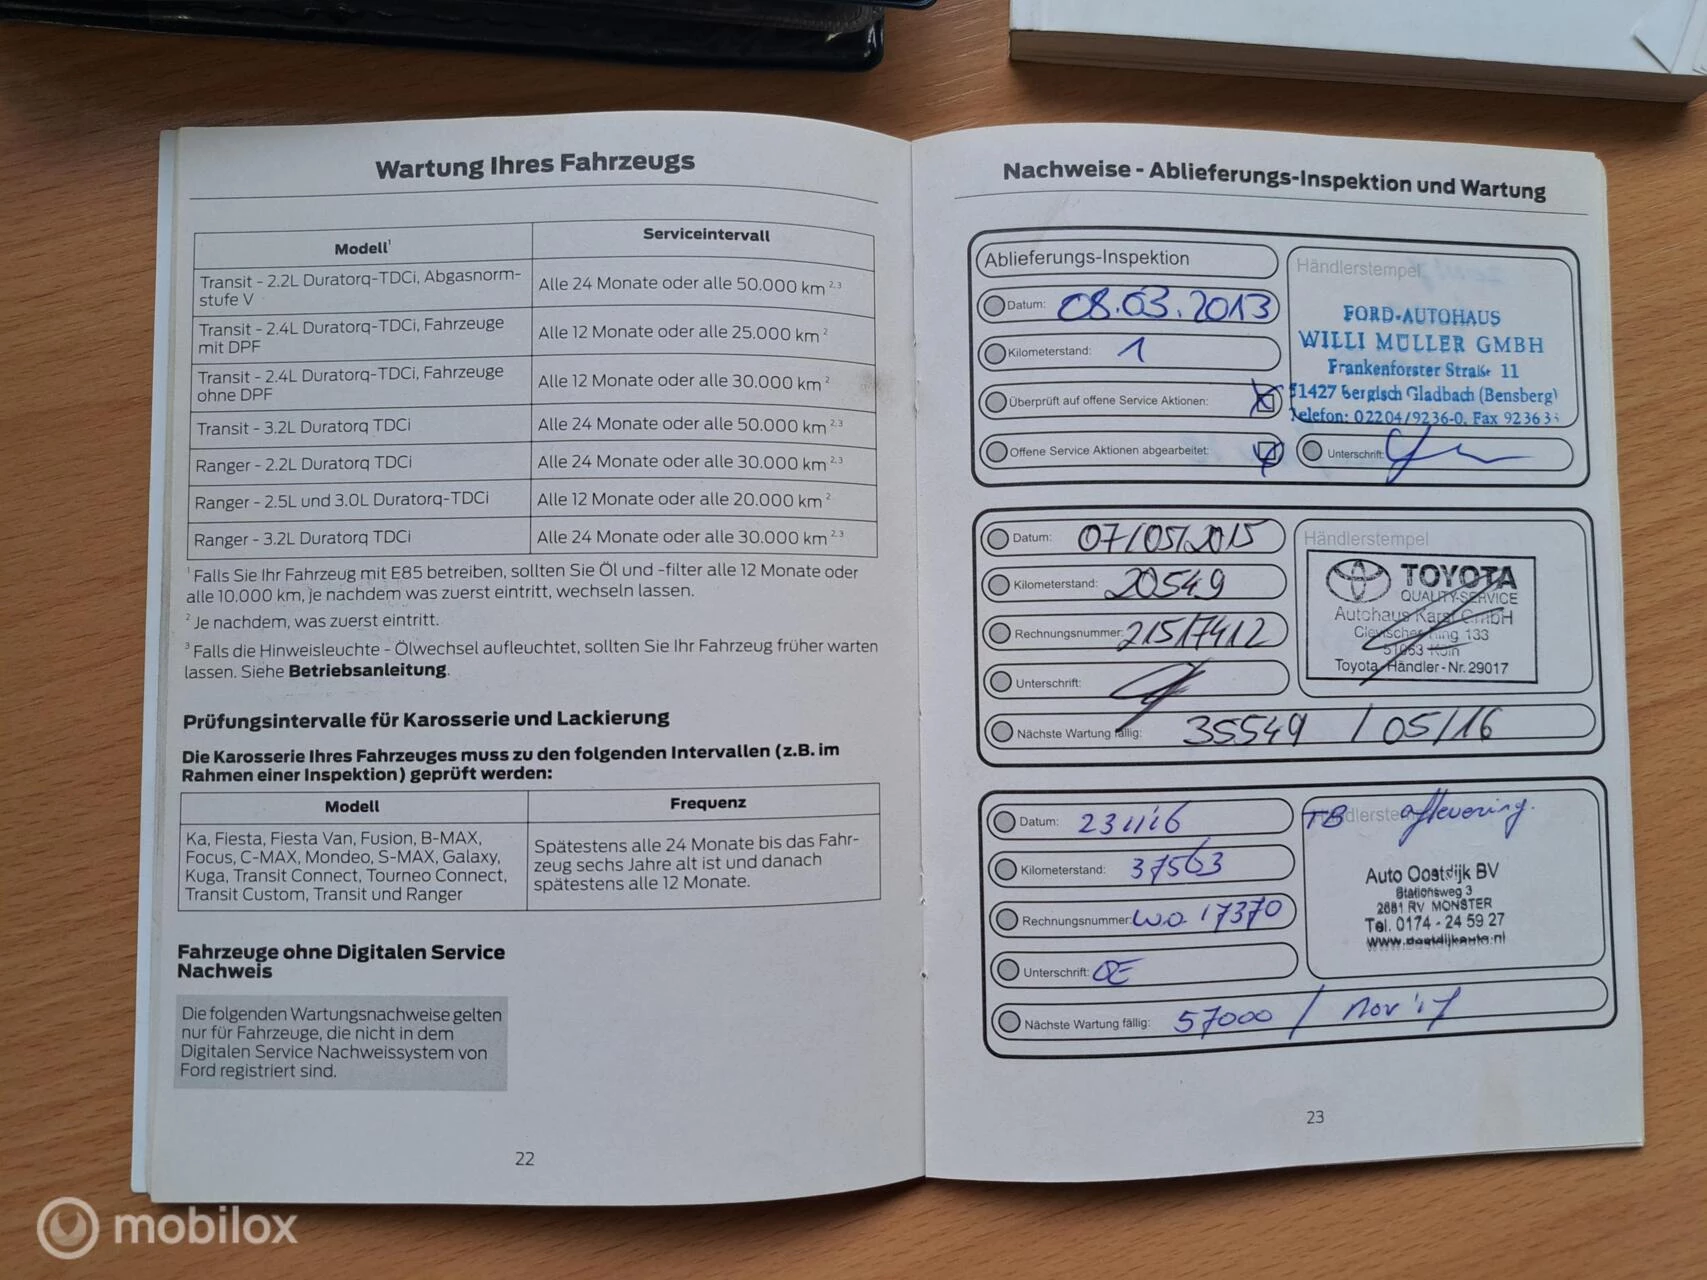 Wartung Ihres Fahrzeugs
Modell¹ Serviceintervall
Transit - 2.2L Duratorq-TDCi, Abgasnorm-
stufe V
Alle 24 Monate oder alle 50.000 km ²,³
Transit - 2.4L Duratorq-TDCi, Fahrzeuge
mit DPF
Alle 12 Monate oder alle 25.000 km ²
Transit - 2.4L Duratorq-TDCi, Fahrzeuge
ohne DPF
Alle 12 Monate oder alle 30.000 km ²
Transit - 3.2L Duratorq TDCi Alle 24 Monate oder alle 50.000 km ²,³
Ranger - 2.2L Duratorq TDCi Alle 24 Monate oder alle 30.000 km ²,³
Ranger - 2.5L und 3.0L Duratorq-TDCi Alle 12 Monate oder alle 20.000 km ²
Ranger - 3.2L Duratorq TDCi Alle 24 Monate oder alle 30.000 km ²,³
¹ Falls Sie Ihr Fahrzeug mit E85 betreiben, sollten Sie Öl und -filter alle 12 Monate oder
alle 10.000 km, je nachdem was zuerst eintritt, wechseln lassen.
² Je nachdem, was zuerst eintritt.
³ Falls die Hinweisleuchte - Ölwechsel aufleuchtet, sollten Sie Ihr Fahrzeug früher warten
lassen. Siehe Betriebsanleitung.
Prüfungsintervalle für Karosserie und Lackierung
Die Karosserie Ihres Fahrzeuges muss zu den folgenden Intervallen (z.B. im
Rahmen einer Inspektion) geprüft werden:
Modell Frequenz
Ka, Fiesta, Fiesta Van, Fusion, B-MAX,
Focus, C-MAX, Mondeo, S-MAX, Galaxy,
Kuga, Transit Connect, Tourneo Connect,
Transit Custom, Transit und Ranger
Spätestens alle 24 Monate bis das Fahr-
zeug sechs Jahre alt ist und danach
spätestens alle 12 Monate.
Fahrzeuge ohne Digitalen Service
Nachweis
Die folgenden Wartungsnachweise gelten
nur für Fahrzeuge, die nicht in dem
Digitalen Service Nachweissystem von
Ford registriert sind.
22
Nachweise - Ablieferungs-Inspektion und Wartung
Ablieferungs-Inspektion
Datum: 08.03.2013
Kilometerstand: 1
Überprüft auf offene Service Aktionen:
Offene Service Aktionen abgearbeitet:
Händlerstempel
FORD-AUTOHAUS
WILLI MÜLLER GMBH
Frankenforster Straße 11
51427 Bergisch Gladbach (Bensberg)
Telefon: 02204/9236-0, Fax 92363
Unterschrift:
Datum: 07/05/2015
Kilometerstand: 20549
Rechnungsnummer: 215/7412
Unterschrift:
Nächste Wartung fällig: 35549 / 05/16
Händlerstempel
TOYOTA
QUALITY-SERVICE
Autohaus Karst GmbH
Clevischer Ring 133
51063 Köln
Toyota-Händler-Nr. 29017
Datum: 231116
Kilometerstand: 37563
Rechnungsnummer: W.O. 17370
Unterschrift: OE
Nächste Wartung fällig: 57000 / nov '17
TB aflevering.
Auto Oostdijk BV
Stationsweg 3
2681 RV MONSTER
Tel. 0174 - 24 59 27
www.oostdijkauto.nl
23
mobilox